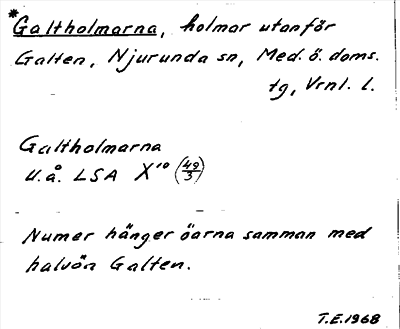 *Galtholmarna, holmar utanför
Galten, Njurunda sn, Med. ö. doms.
tg, Vrnl. l.
Galtholmarna
U.å. LSA X¹⁰ (49/3)
Numer hänger öarna samman med
halvön Galten.
T.E. 1968